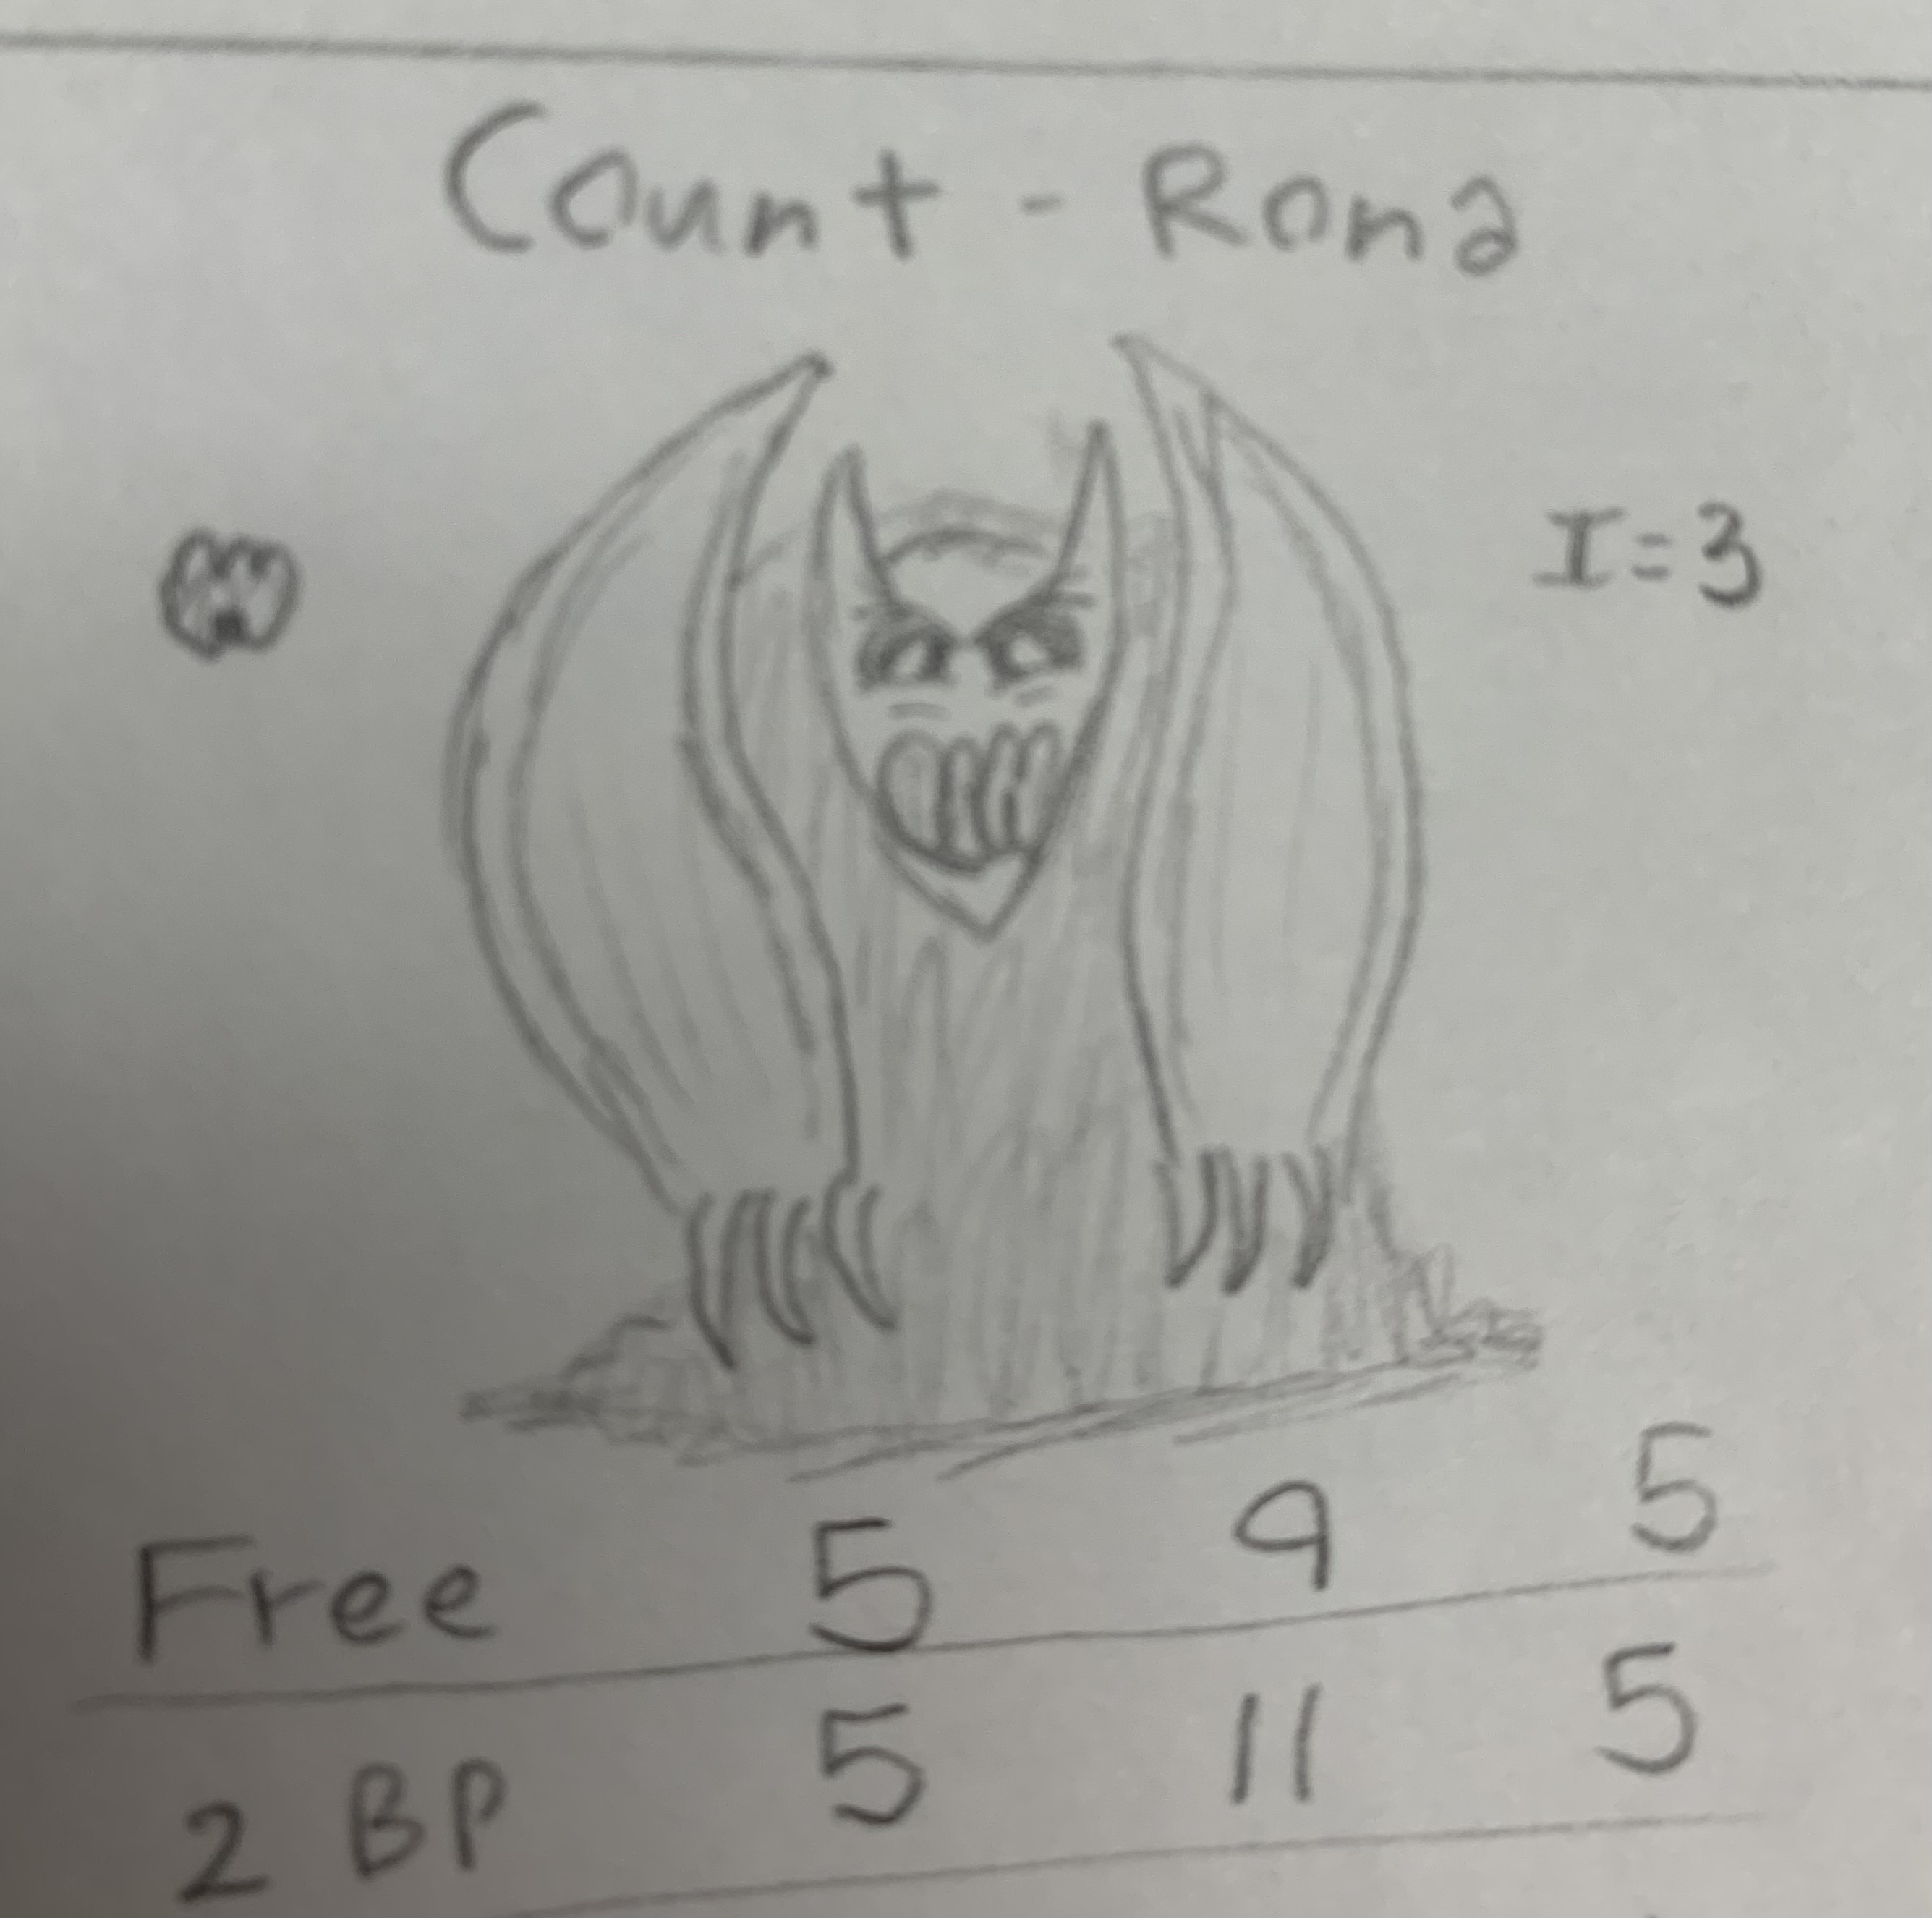 Count - Rona
I=3
Free 5 9 5
2 BP 5 11 5